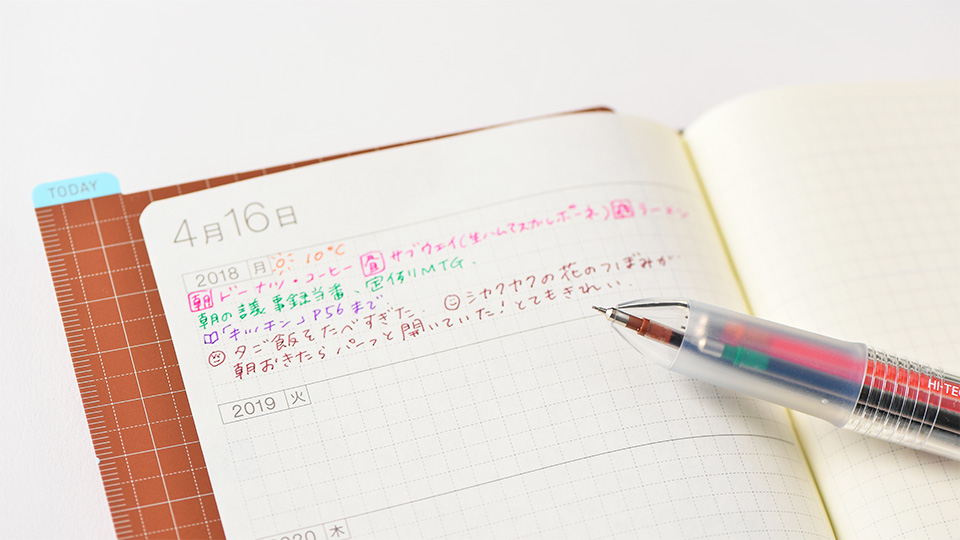 TODAY
4月16日
2018 月 10℃
朝 ドーナツ・コーヒー 昼 サブウェイ(生ハムマスカルポーネ) 夜 ラーメン
朝の議事録当番、定例MTG.
「キッチン」P56まで
夕ご飯をたべすぎた. シャクヤクの花のつぼみが
朝おきたらパーっと開いていた!とてもきれい.
2019 火
2020 木
HI-TEC